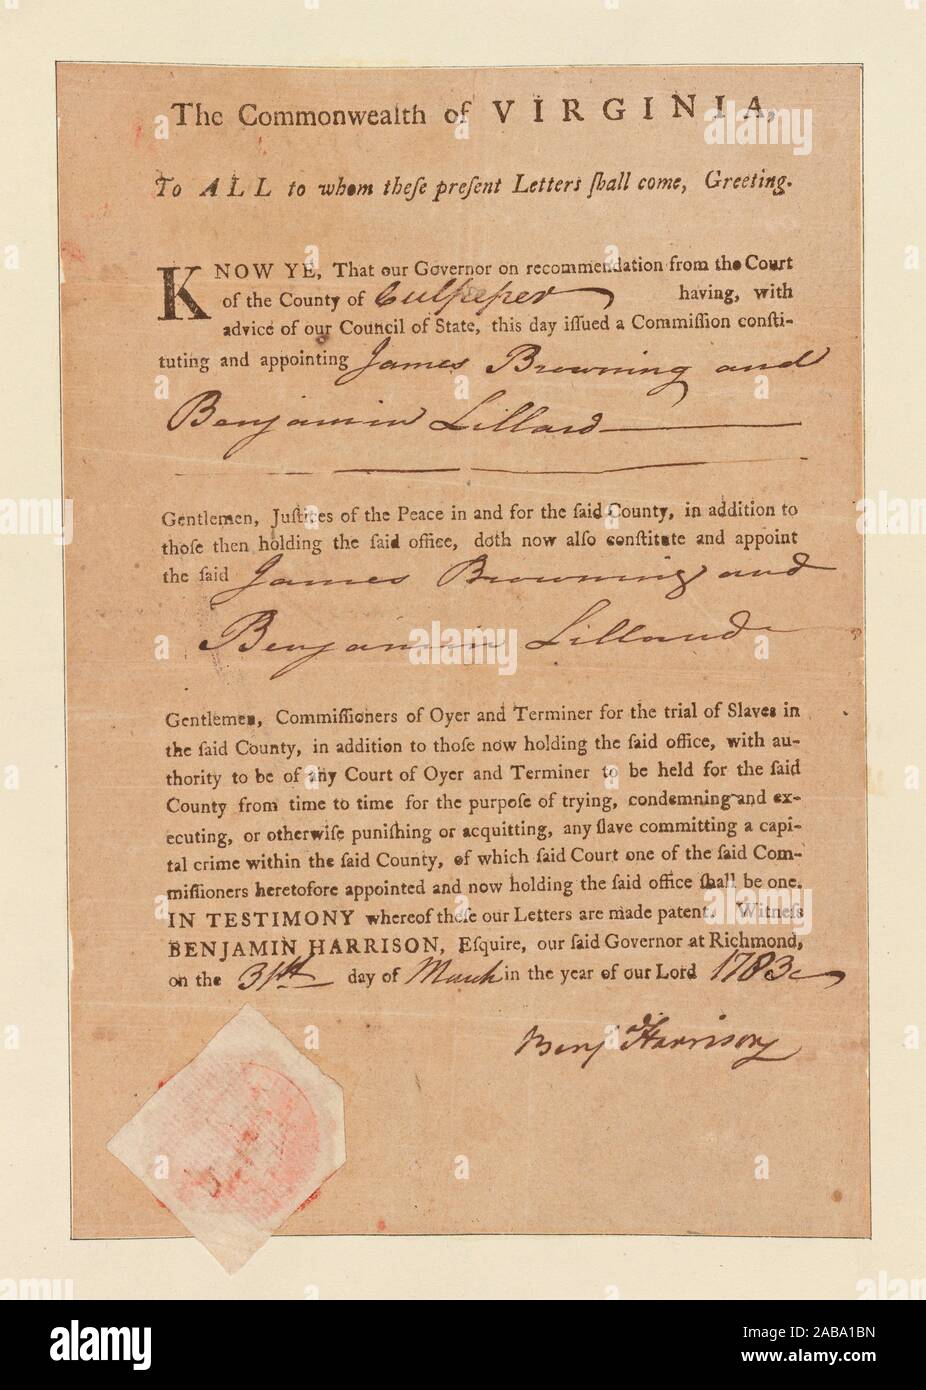 The Commonwealth of VIRGINIA,
To ALL to whom theſe preſent Letters ſhall come, Greeting.
KNOW YE, That our Governor on recommendation from the Court
of the County of Culpeper having, with
advice of our Council of State, this day iſſued a Commiſſion conſti-
tuting and appointing James Browning and
Benjamin Lillard
Gentlemen, Juſtices of the Peace in and for the ſaid County, in addition to
thoſe then holding the ſaid office, doth now alſo conſtitute and appoint
the ſaid James Browning and
Benjamin Lillard
Gentlemen, Commiſſioners of Oyer and Terminer for the trial of Slaves in
the ſaid County, in addition to thoſe now holding the ſaid office, with au-
thority to be of any Court of Oyer and Terminer to be held for the ſaid
County from time to time for the purpoſe of trying, condemning and ex-
ecuting, or otherwiſe puniſhing or acquitting, any ſlave committing a capi-
tal crime within the ſaid County, of which ſaid Court one of the ſaid Com-
miſſioners heretofore appointed and now holding the ſaid office ſhall be one.
IN TESTIMONY whereof theſe our Letters are made patent. Witneſs
BENJAMIN HARRISON, Eſquire, our ſaid Governor at Richmond,
on the 31ſt day of March in the year of our Lord 1783
Benj Harrison
alamy
alamy
Image ID: 2ABA1BN
www.alamy.com